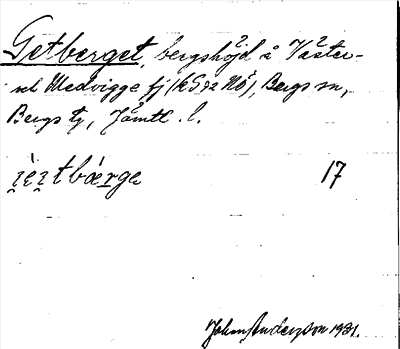 Getberget, bergshöjd å Väster-
och Medvigge fj (KS 92 NÖ), Bergs sn,
Bergs tg, Jämtl. l.
17
John Anderson 1931.